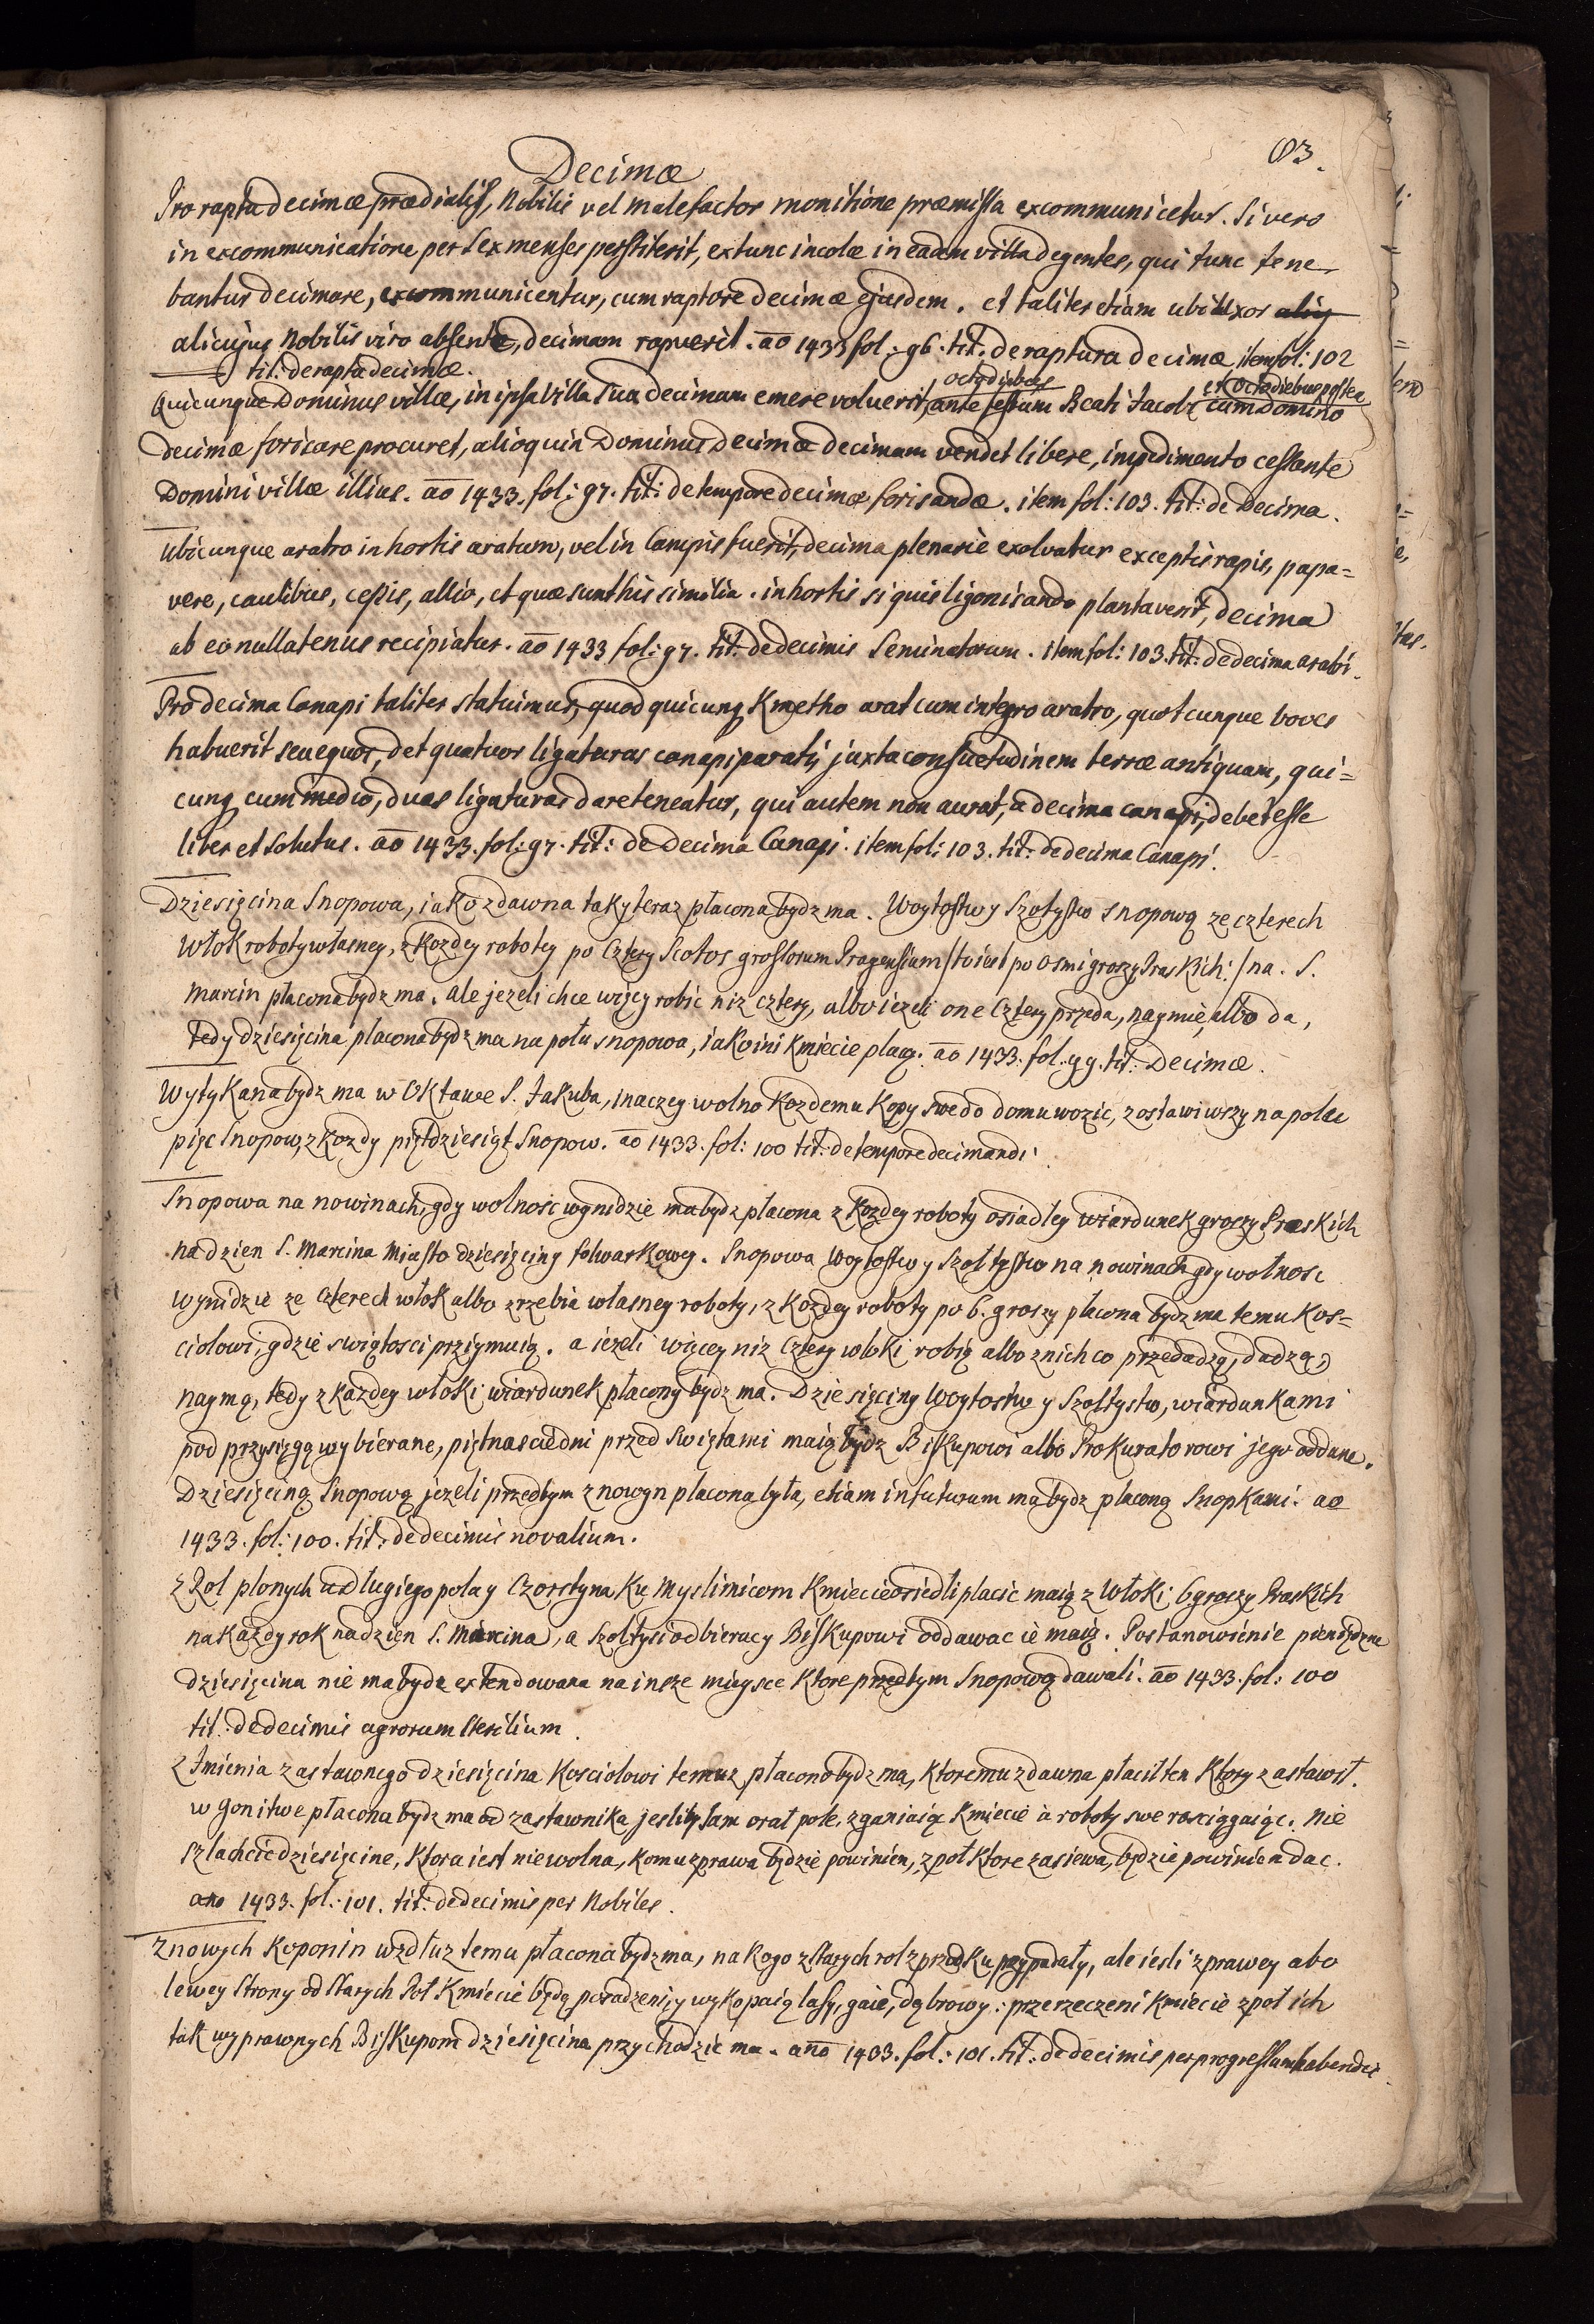 Decimæ
Pro rapta decimæ prædialis, Nobilis vel malefactor monitione præmissa excommunicetur. Si vero
in excommunicatione per sex menses perstiterit, extunc incolæ in eadem villa degentes, qui tunc tene-
bantur decimare, excommunicentur, cum raptore decimæ ejusdem. et taliter etiam ubi uxor aliq
alicujus Nobilis viro absente, decimam rapuerit. ao 1433 fol: 96. tit: de raptura decimæ, item fol: 102
tit: de rapta decimæ.
octo diebus et octo diebus postea
Quicunque Dominus villæ, in ipsa villa sua decimam emere voluerit, ante festum Beati Jacobi cum domino
decimæ forisare procuret, alioquin Dominus Decimæ decimam vendet libere, impedimento cessante
Domini villæ illius. ao 1433. fol: 97. tit: de tempore decimæ forisandæ. item fol: 103. tit: de Decima.
Ubicunque aratro in hortis aratum, vel in Campis fuerit, decima plenarie exolvatur exceptis rapis, papa=
vere, caulibus, cepis, allio, et quæ sunt his similia. in hortis si quis ligonisando plantaverit, decima
ab eo nullatenus recipiatur. ao 1433 fol: 97. tit: de decimis Seminatorum. item fol: 103. tit: de decima arabi.
Pro decima Canapi taliter statuimus, quod quicunq Kmetho arat cum integro aratro, quotcunque boves
habuerit seu equos, det quatuor ligaturas canapi parati, juxta consuetudinem terræ antiquam, qui=
cunq cum medio, duas ligaturas dare teneatur, qui autem non aurat, a decima canapi, debet esse
liber et solutus. ao 1433. fol: 97. tit: de decima Canapi. item fol: 103. tit: de decima Canapi.
Dziesięcina Snopowa, iako zdawna tak y teraz płacona bydz ma. Woytostw y Szołtystw snopową ze czterech
Włok roboty własney, z kozdey roboty po Cztery Scotos grossorum Pragensium /: to iest po osmi groszy Praskich :/ na. S.
Marcin płacona bydz ma. ale jezeli chce więcy robic niz cztery, albo iezeli one Cztery przeda, naymie, albo da,
tedy dziesięcina placona bydz ma na połu snopowa, iako ini Kmiecie placą. ao 1433. fol: 99. tit: Decimæ.
Wytykana bydz ma w Oktawe S. Jakuba, inaczey wolno kozdemu kopy swe do domu wozic, zostawiwszy na polu
pięc Snopow, z kozdy piętdziesiąt Snopow. ao 1433. fol: 100 tit: de tempore decimandi.
Snopowa na nowinach, gdy wolnosc wynidzie ma bydz płacona z kozdey roboty osiadley wiardunek groszy Praskich
na dzien S. Marcina Miasto dziesięciny folwarkowey. Snopowa Woytostw y Szołtystw na nowinach gdy wolnosc
wynidzie ze Czterech włok albo zrzebia własney roboty, z kozdey roboty po 6. groszy płacona bydz ma temu Kos=
ciolowi, gdzie swiątosci przymuią. a iezeli więcey niz Cztery wloki robią albo z nich co przedadzą, dadzą,
naymą, tedy z kazdey włoki wiardunek płacony bydz ma. Dziesięciny Woytostw y Szołtystw, wiardunkami
pod przysięgą wybierane, piętnascie dni przed Swiętami maią bydz Biskupowi albo Prokuratorowi jego oddane.
Dziesięciną Snopową jezeli przedtym z nowyn placona była, etiam in futurum ma bydz placoną Snopkami. ao
1433. fol: 100. tit: de decimis novalium.
z Rol plonych u długiego pola y Czorstyna ku Myslimicom Kmiecie osiedli placic maią z Włoki 6 groszy Praskich
na kazdy rok na dzien S. Marcina, a Szołtysi odbieracy Biskupowi oddawac ie maią. Postanowienie pieniężne
dziesięcina nie ma bydz extendowana na insze mieysce ktore przedtym Snopową dawali. ao 1433. fol: 100
tit: de decimis agrorum sterilium.
z Imienia zastawnego dziesięcina kosciołowi temuz płacono bydz ma, ktoremu zdawna płacił ten ktory zastawił.
w gonitwe płacona bydz ma od zastawnika jesliby sam orał pole, zganiaiąc kmiecie a roboty swe rosciągaiąc. Nie
szlachcic dziesięcine, ktora iest niewolna, komu z prawa będzie powinien, z poł ktore zasiewa, będzie powinien dac.
ano 1433. fol: 101. tit: de decimis per Nobiles.
Z nowych Koponin wzdłuz temu płacona bydz ma, na kogo z starych rol z przodku przypadały, ale iesli z prawey abo
lewey Strony od starych Pol Kmiecie będą posadzeni, y wykopaią lasy, gaie, dąbrowy: przerzeczeni kmiecie z pol ich
tak wyprawnych Biskupom dziesięcina przychodzic ma. ano 1433. fol: 101. tit: de decimis per progressum habendis.